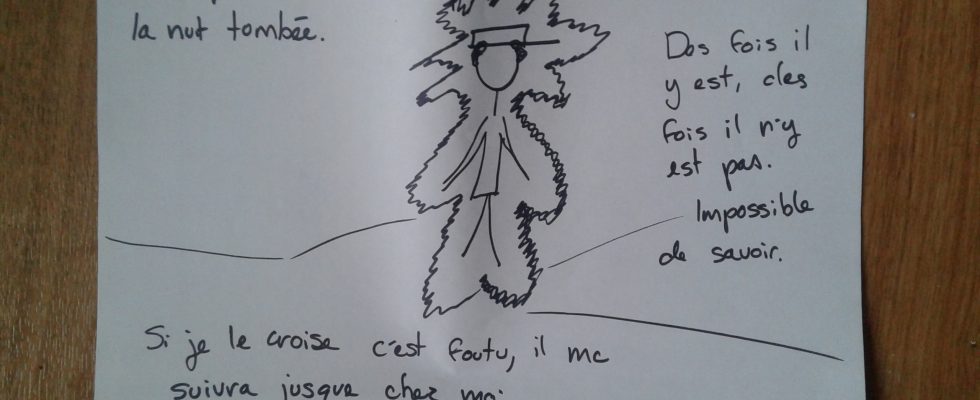 la nuit tombée.
Des fois il
y est, des
fois il n'y
est pas.
Impossible
de savoir.
Si je le croise c'est foutu, il me
suivra jusque chez moi